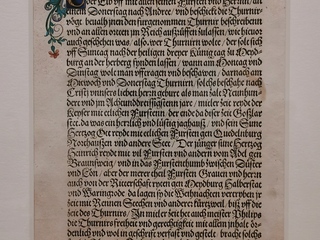 der Eyb vff mit allen seinen Fürsten vnd Herrn, an
einem Donerstag nach Andree vnd beschickt die Thurnir
vögt benalh inen den fürgenommen Thurnir beschreiben
vnd an allen örtten jm Reich außrüffen zulassen, wie hieuor
auch geschehen was, also, wer Thurnirn wolte, der solt sich
vff Suntag nach der heiligen dreyer Künig tag zu Mey
burg an der herberg fynden lassen, wann am Montag vnd
Dinstag wolt man vfftragen vnd beschawen, darnach am
Mitwoch vnd Donerstag Thurnirn, solichs beschahe nach
Cristi vnnsers lieben herrn geburt als man zalt Neunhun
dert vnd jm Achtunddreissigisten jare, mitler zeit reydt der
Keyser mit etlichen Fürsten, der ende da diser zeit Goslar
stet, da was ein herlich vnd lustig jaghauß, vnd sein Sune
Hertzog Ott reydt mit etlichen Fursten gen Quedenburg
Northausen vnd andere Stet, Der jünger sune Hertzog
Heinrich reydt mit vil Fürsten vnd andern vom Adel gen
Braunschweig, vnd in das Fürstenthumb zwischen Düster
vnd Lön, aber der merer theil Fürsten Grauen vnd herrn
auch von der Ritterschafft rytten gen Meydburg Halberstat
vnd Wanngleybe da lagen sie die Weihnachten vertryben jr
zeit mit Rennen Stechen vnd andere kürtzweil, biß vff die
zeit des Thurnirs, In mitler zeit het auch meister Philips
die Thurnirs freiheit vnd gerechtigkeit mit allem jnhalt or
denlich vnd wol in geschrifft verfast vnd gestelt, bracht solichs